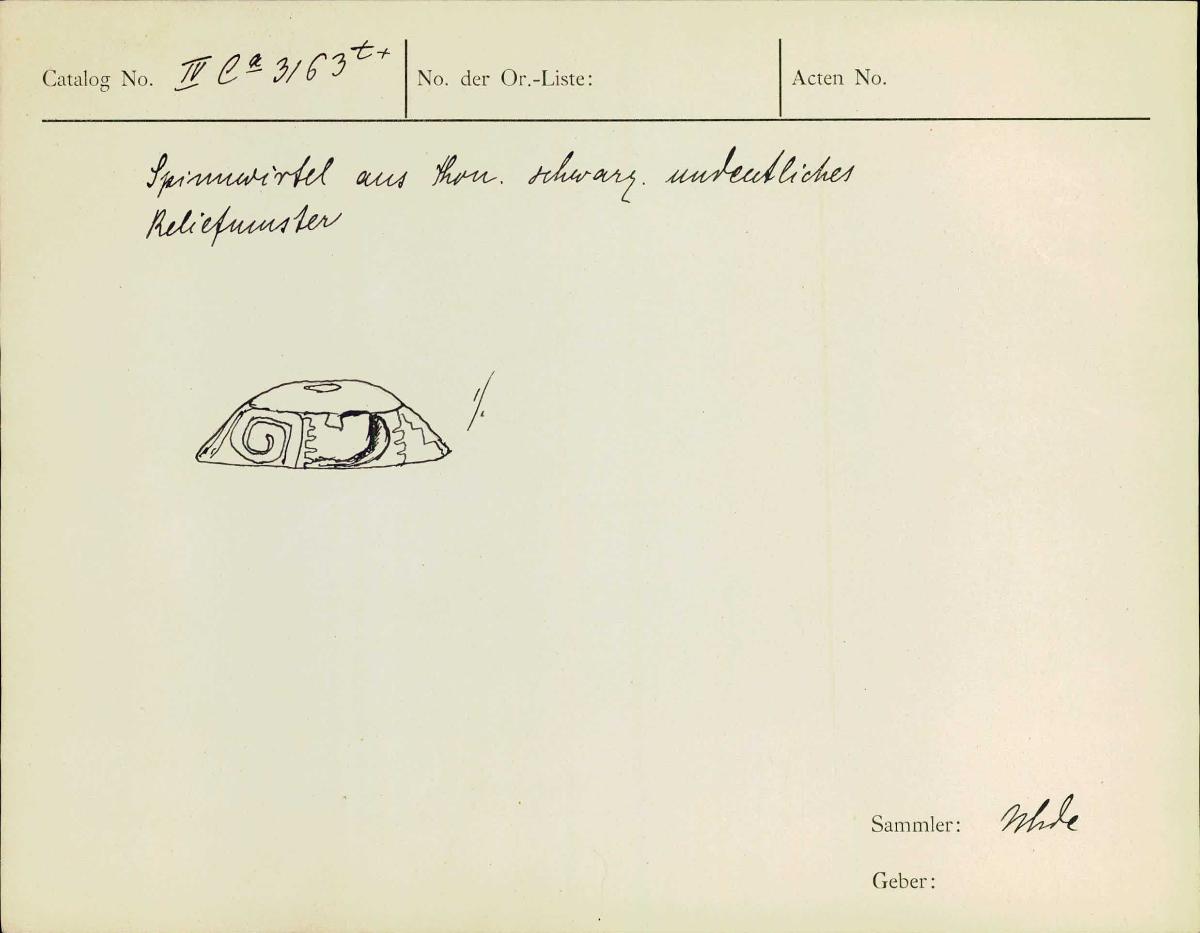 Catalog No. IV Ca 3163 t+
No. der Or.-Liste:
Acten No.
Spinnwirtel aus Thon. schwarz. undeutliches
Reliefmuster
1/1
Sammler: Uhde
Geber: